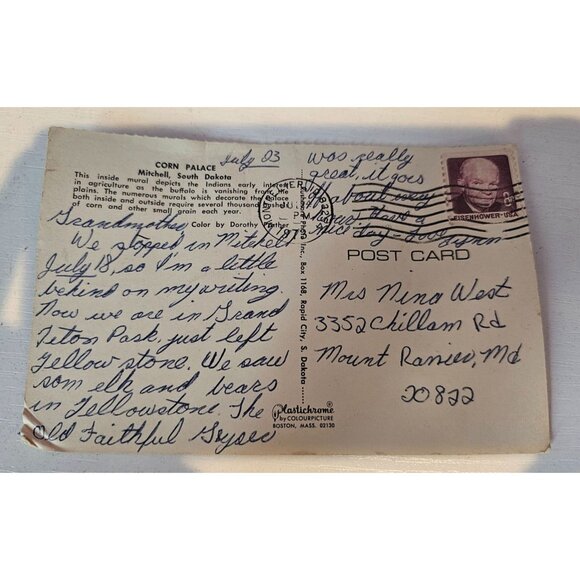 CORN PALACE
Mitchell, South Dakota
This inside mural depicts the Indians early interest
in agriculture as the buffalo is vanishing from the
plains. The numerous murals which decorate the palace
both inside and outside require several thousand bushels
of corn and other small grain each year.
Color by Dorothy
July 23
Grandmother
We stopped in Mitchell
July 18, so I'm a little
behind on my writing.
Now we are in Grand
Teton Park, just left
Yellowstone. We saw
som elk and bears
in Yellowstone. The
Old Faithful Geyser
was really
great, it goes
about
hour. Have a
nice day - Love
Lynn
Photo Inc., Box 1168, Rapid City, S. Dakota
Plastichrome®
by COLOURPICTURE
BOSTON, MASS. 02130
EISENHOWER·USA
POST CARD
Mrs Nina West
3352 Chillam Rd
Mount Ranier, Md
20822